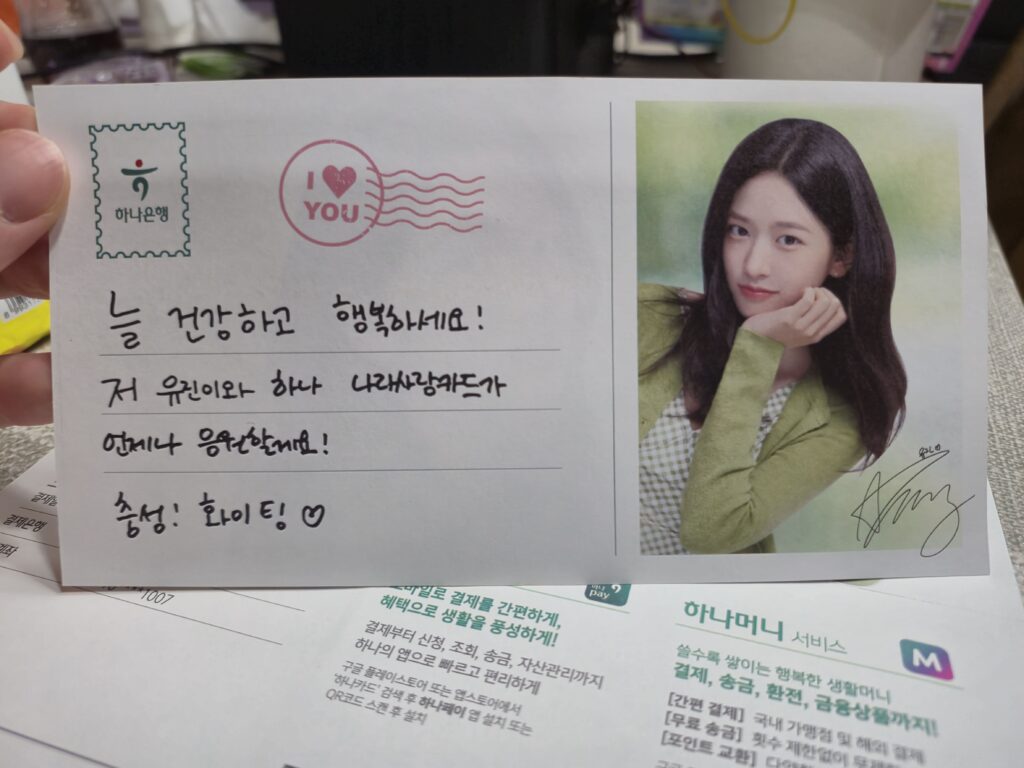 하나은행
I ♥
YOU
늘 건강하고 행복하세요!
저 유진이와 하나 나라사랑카드가
언제나 응원할게요!
충성! 화이팅 ♡
결제은행
1007
pay
결제를 간편하게,
혜택으로 생활을 풍성하게!
결제부터 신청, 조회, 송금, 자산관리까지
하나의 앱으로 빠르고 편리하게
구글 플레이스토어 또는 앱스토어에서
'하나카드' 검색 후 하나페이 앱 설치 또는
QR코드 스캔 후 설치
하나머니 서비스
M
쓸수록 쌓이는 행복한 생활머니
결제, 송금, 환전, 금융상품까지!
[간편 결제] 국내 가맹점 및 해외 결제
[무료 송금] 횟수 제한없이 무제한
[포인트 교환]